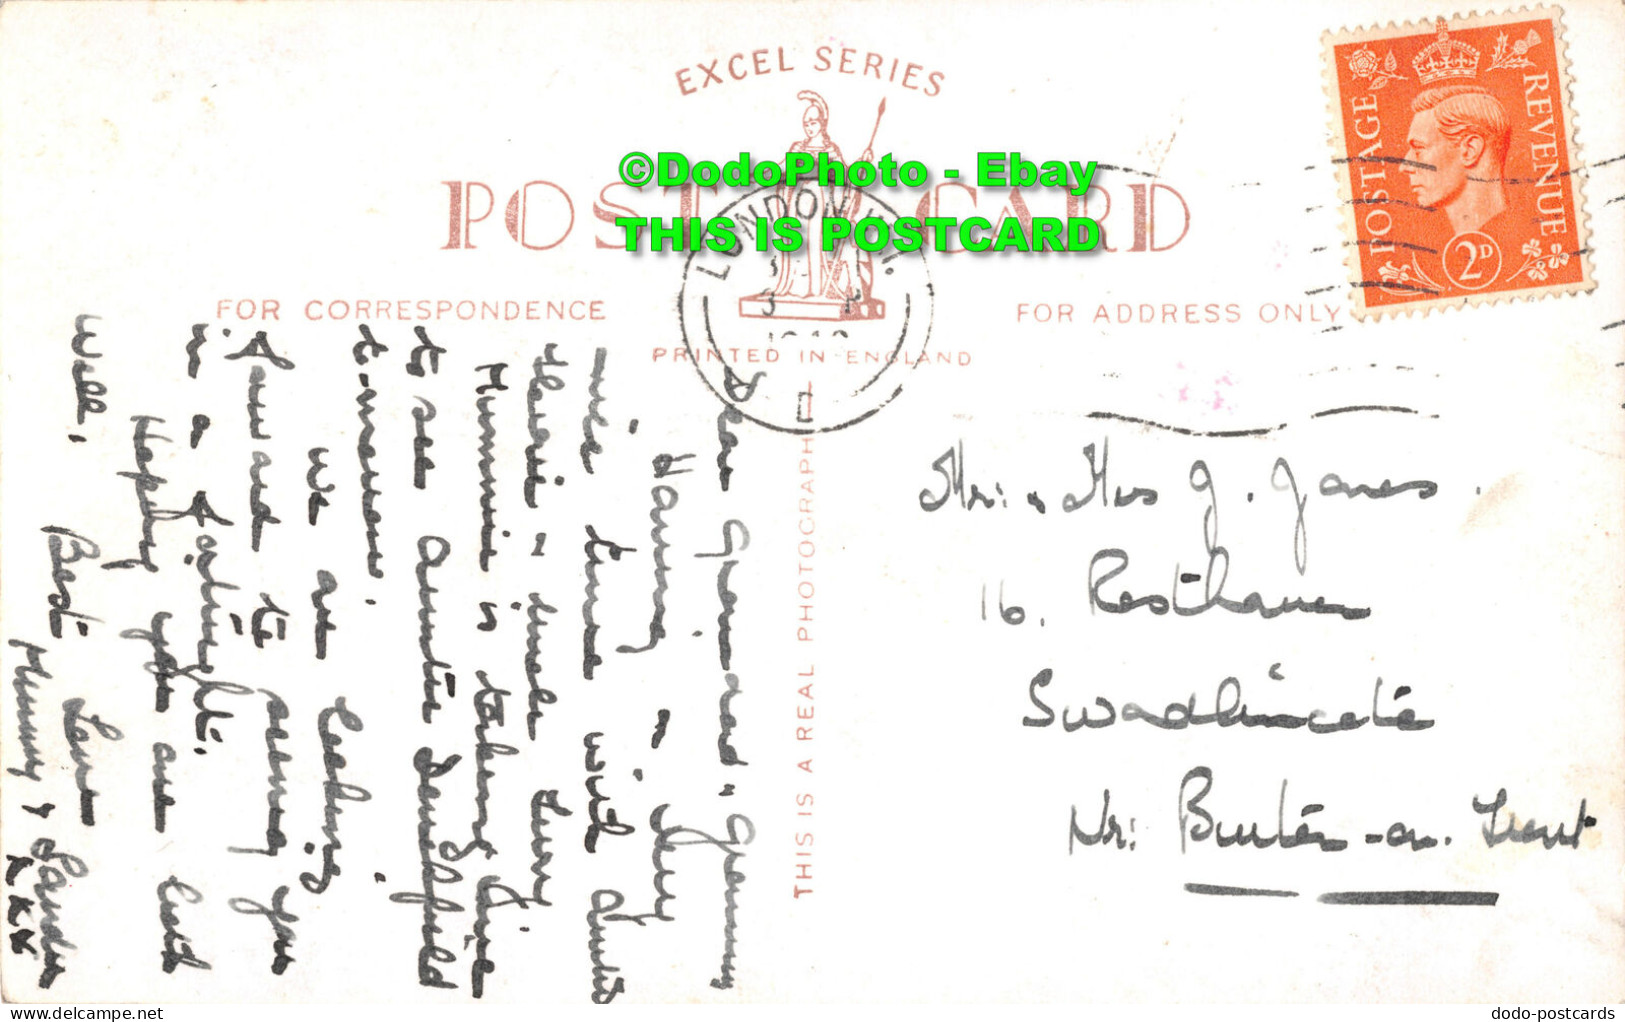 EXCEL SERIES
POST CARD
©DodoPhoto - Ebay
THIS IS POSTCARD
LONDON W.1.
FOR CORRESPONDENCE
FOR ADDRESS ONLY
PRINTED IN ENGLAND
THIS IS A REAL PHOTOGRAPH
POSTAGE
REVENUE
2D
Dear Grandad & Granny
Having a very
nice time with Auntie
& Uncle
Mummie is taking
to see Auntie
to-morrow.
We are looking
forward to seeing you
in a fortnight.
Hoping you are both
Well.
Best Love
Mummy &
xxx
Mr: & Mrs J. Jones.
16. Resthaven
Swadlincote
Nr: Burton-on-Trent
dodo-postcards